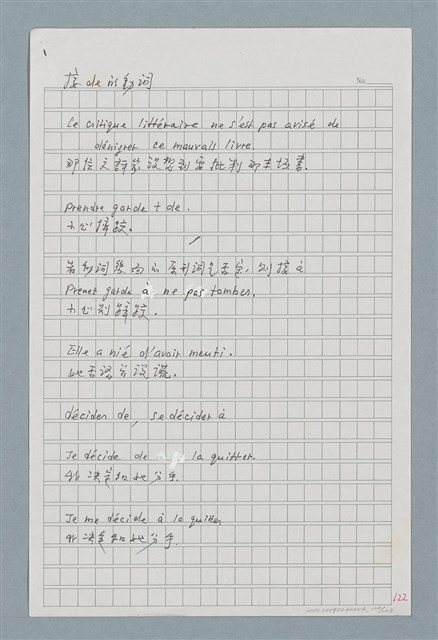 接 de 的動詞
No.
Le critique littéraire ne s'est pas avisé de
dénigrer ce mauvais livre.
那位文評家沒想到要批判那本壞書.
Prendre garde + de.
小心摔跤.
若動詞後面的原形詞是否定, 則接 à
Prenez garde à ne pas tomber.
小心別摔跤.
Elle a nié d'avoir menti.
她否認曾說謊.
décider de, se décider à
Je décide de la quitter.
我決定和她分手.
Je me décide à la quitter
我決定和她分手.
122